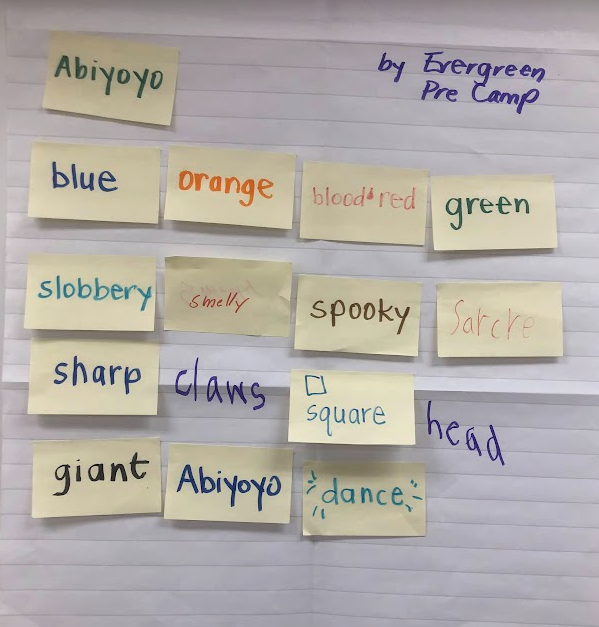 Abiyoyo
by Evergreen
Pre Camp
blue orange blood red green
slobbery smelly spooky Sarcre
sharp claws square head
giant Abiyoyo dance